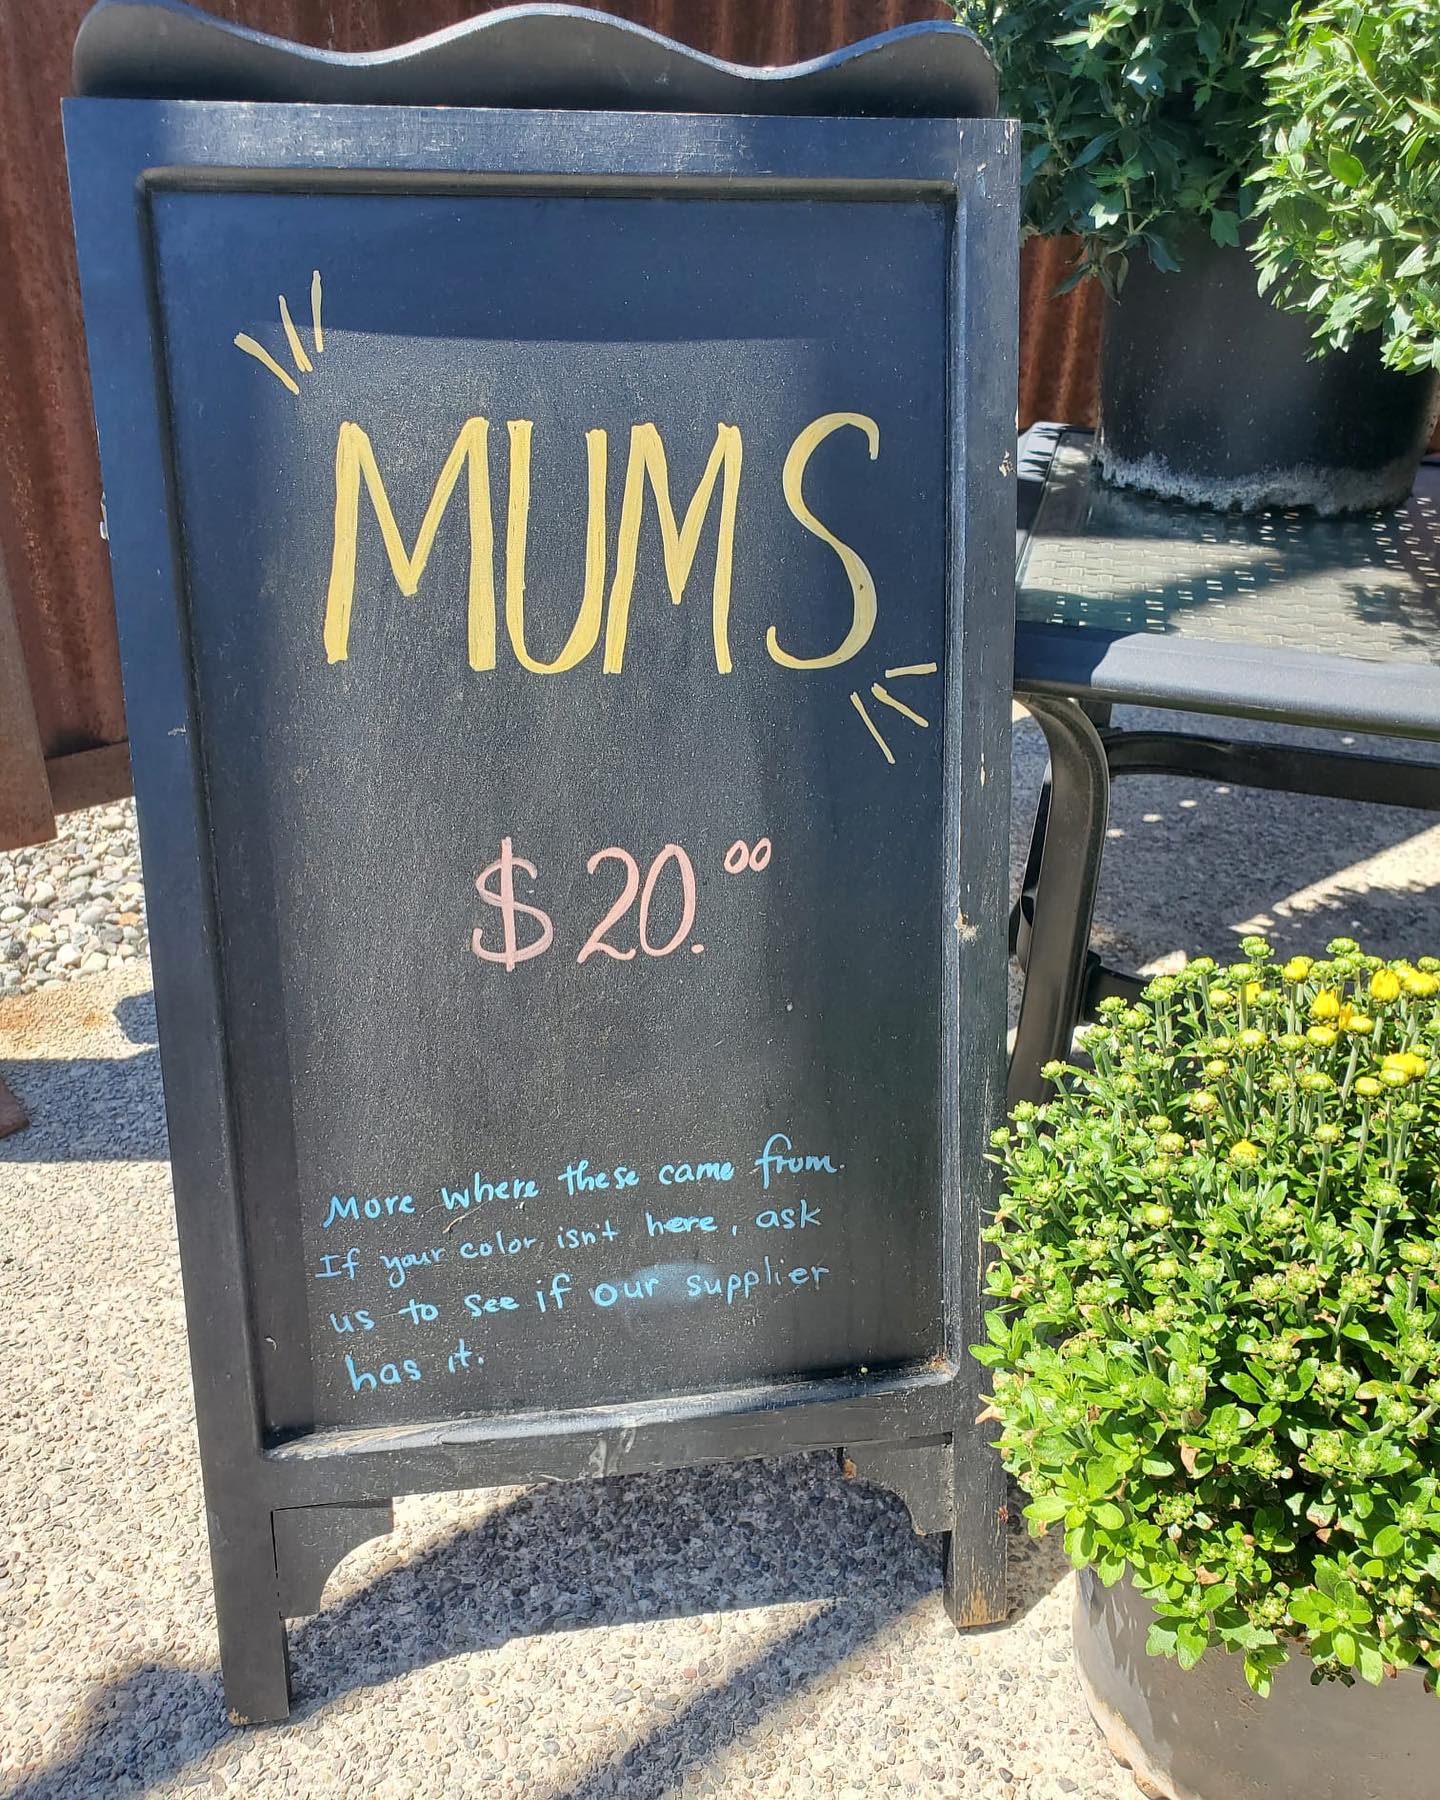 MUMS
$20.00
More where these came from.
If your color isn't here, ask
us to see if our supplier
has it.